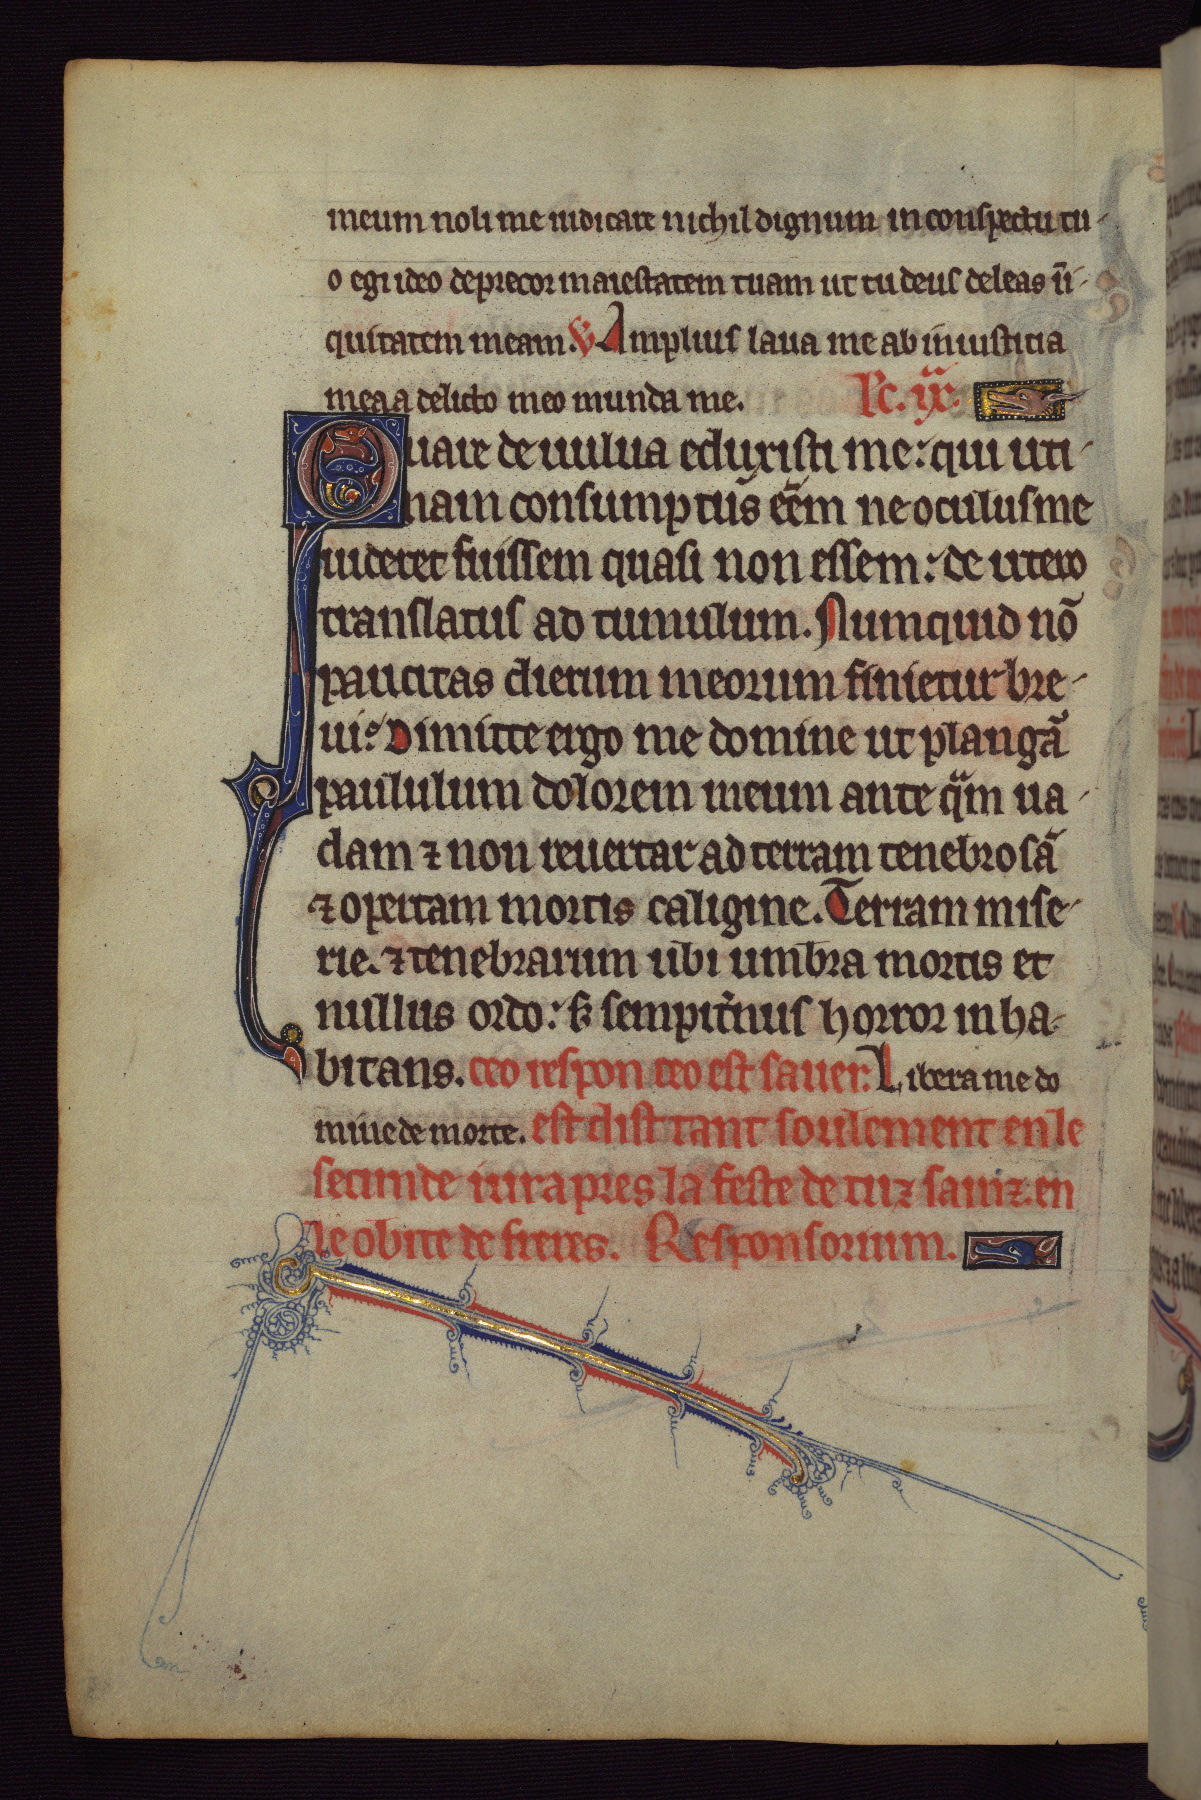 meum noli me iudicare nichil dignum in conspectu tu-
o egi ideo deprecor maiestatem tuam ut tu deus deleas ini-
quitatem meam. V. Amplius laua me ab iniusticia
mea a delicto meo munda me. Lc. ix.
Quare de uulua eduxisti me: qui uti-
nam consumptus eēm ne oculus me
uideret fuissem quasi non essem: de utero
translatus ad tumulum. Numquid nō
paucitas dierum meorum finietur bre-
ui? Dimitte ergo me domine ut plangā
paululum dolorem meum ante qam ua-
dam ⁊ non reuertar ad terram tenebrosā
⁊ opertam mortis caligine. Terram mise-
rie. ⁊ tenebrarum ubi umbra mortis et
nullus ordo: s; sempit̾nus horror inha-
bitans. ceo respon ceo est sauer: Libera me do
mine de morte. est dist tant soulement en le
secunde iur apres la feste de tuz sainz. en
le obite de freres. Responsorium.